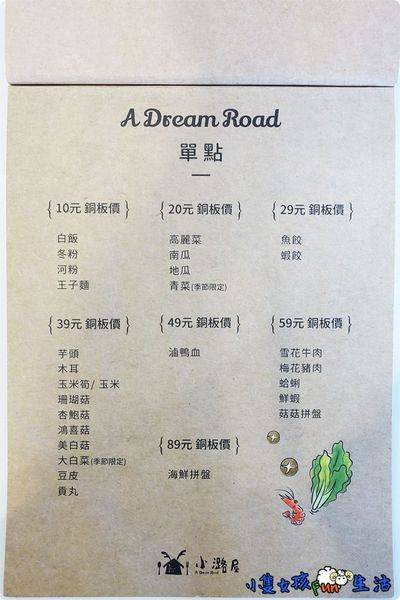 A Dream Road
單點
{ 10元 銅板價 }
白飯
冬粉
河粉
王子麵
{ 20元 銅板價 }
高麗菜
南瓜
地瓜
青菜(季節限定)
{ 29元 銅板價 }
魚餃
蝦餃
{ 39元 銅板價 }
芋頭
木耳
玉米筍/ 玉米
珊瑚菇
杏鮑菇
鴻喜菇
美白菇
大白菜(季節限定)
豆皮
貢丸
{ 49元 銅板價 }
滷鴨血
{ 59元 銅板價 }
雪花牛肉
梅花豬肉
蛤蜊
鮮蝦
菇菇拼盤
{ 89元 銅板價 }
海鮮拼盤
小潞屋
A Dream Road
小隻女孩Fun生活